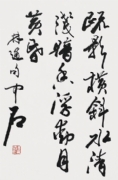 疏影横斜水清
浅暗香浮動月
黄昏
林逋句 中石